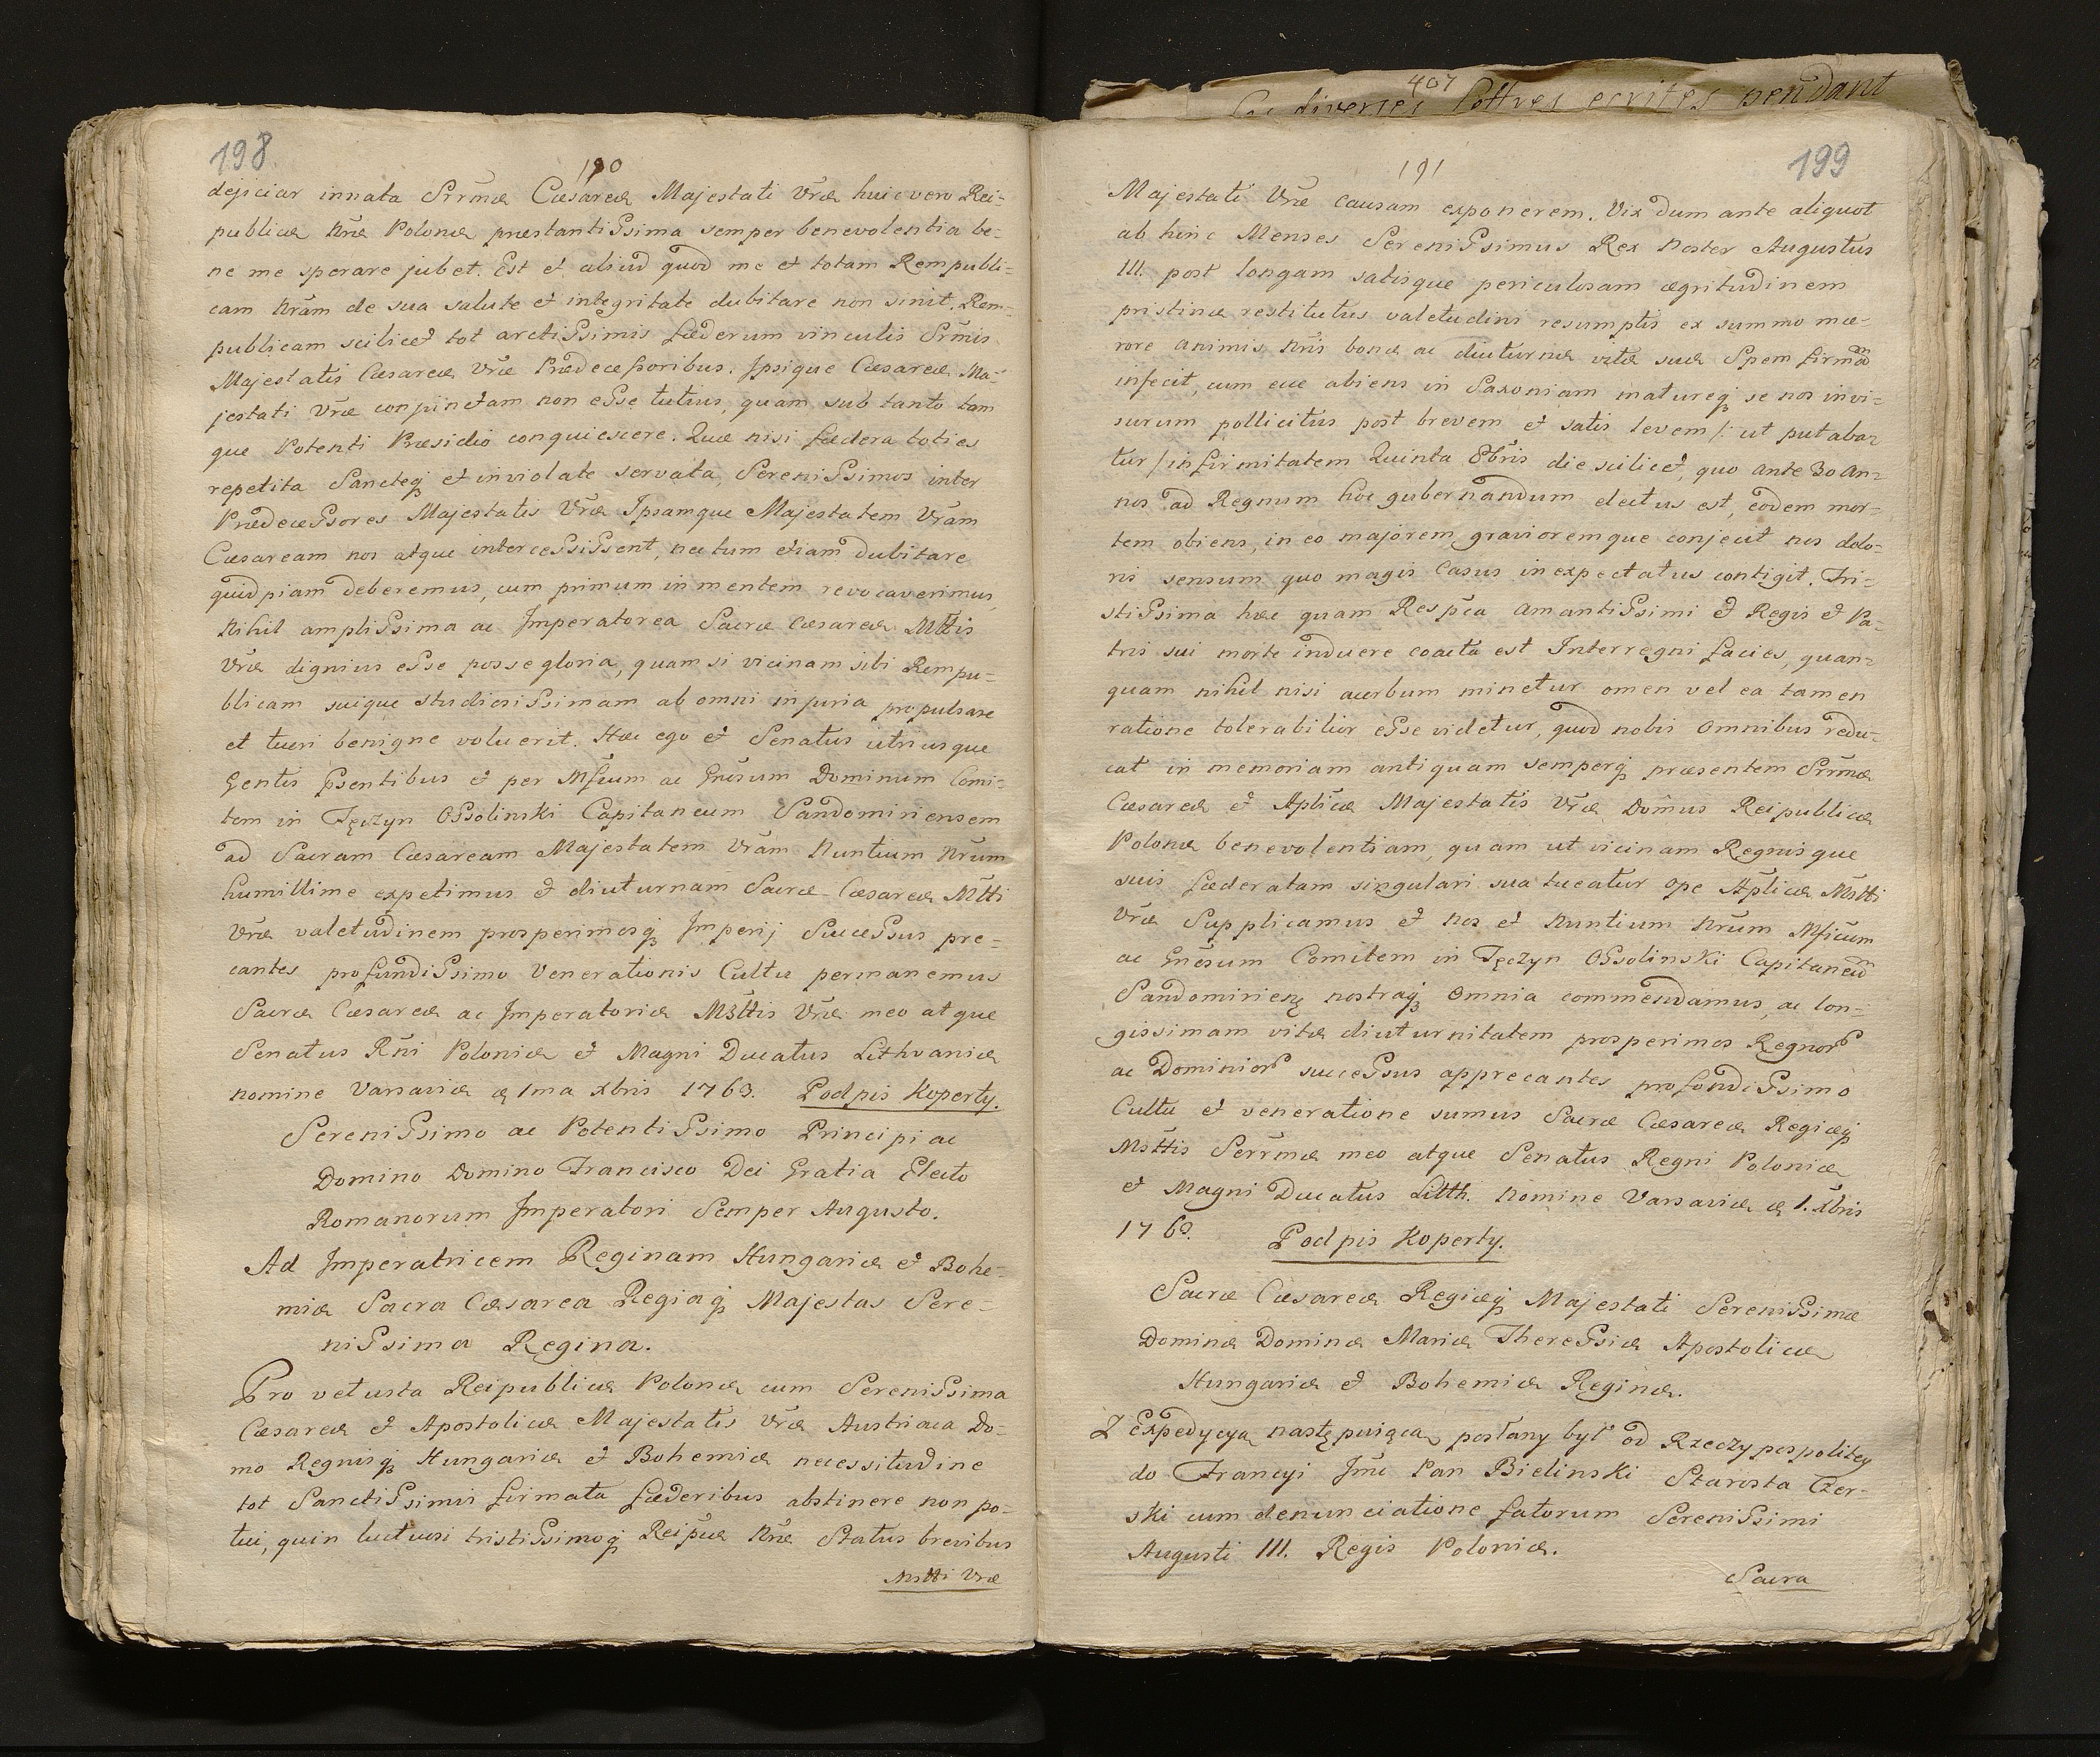 198
190
dejiciar innata Srr̃mæ Cæsareæ Majestati Vr̃æ huic vero Rei-
publicæ Nr̃æ Polonæ præstantissima semper benevolentia be-
ne me sperare jubet. Est et aliud quod me et totam Rempubli-
cam Nr̃am de sua salute et integritate dubitare non sinit. Rem-
publicam scilicet tot arctissimis fæderum vinculis Sr̃mis
Majestatis Cæsareæ Vr̃æ Prædecessoribus. Ipsique Cæsareæ Ma-
jestati Vr̃æ conjunctam non esse tutius, quam sub tanto tam
que Potenti Præsidio conquiescere. Quæ nisi fædera toties
repetita Sancteq3 et inviolate servata, Serenissimos inter
Prædecessores Majestatis Vr̃æ Ipsamque Majestatem Vr̃am
Cæsaream nos atque intercessissent, nectum etiam dubitare
quidpiam deberemus, cum primum in mentem revocaverimus,
Nihil amplissima ac Imperatorea Sacræ Cæsareæ Mttis
Vr̃æ dignius esse posse gloria, quam si vicinam sibi Rempu-
blicam suique studiosissimam ab omni injuria propulsare
et tueri benigne voluerit. Hæc ego et Senatus utriusque
Gentis p̃sentibus et per Mficum ac Gñrsum Dominum Comi-
tem in Tęczyn Ossolinski Capitaneum Sandomiriensem
ad Sacram Cæsaream Majestatem Vr̃am Nuntium Nr̃um
humillime expetimus et diuturnam Sacræ Cæsareæ Mtti
Vr̃æ valetudinem prosperimosq3 Imperij Successus pre-
cantes profundissimo Venerationis Cultu permanemus
Sacræ Cæsareæ ac Imperatoriæ Msttis Vr̃æ meo atque
Senatus Rñi Poloniæ et Magni Ducatus Lithvaniæ
nomine Varsaviæ æ 1ma xbris 1763. Podpis Koperty.
Serenissimo ac Potentissimo Principi ac
Domino Domino Francisco Dei Gratia Electo
Romanorum Imperatori Semper Augusto.
Ad Imperatricem Reginam Hungariæ et Bohe-
miæ Sacra Cæsarea Regiaq3 Majestas Sere-
nissima Regina.
Pro vetusta Reipublicæ Polonæ cum Serenissima
Cæsareæ et Apostolicæ Majestatis Vr̃æ Austriaca Do-
mo Regnisq3 Hungariæ et Bohemiæ necessitudine
tot Sanctissimis firmata fæderibus abstinere non po-
tui, quin luctuosi tristissimoq3 Reip̃cæ Nr̃æ Status brevibus
Mstti Vræ
407
diverses Lettres ecrites pendant
191
199
Majestati Vr̃æ causam exponerem. Vix dum ante aliquot
ab hinc Menses Serenissimus Rex Noster Augustus
III. post longam satisque periculosam ægritudinem
pristinæ restitutus valetudini resumptis ex summo mæ-
rore animis Nr̃is bonæ ac diuturnæ vitæ suæ Spem firmam
infecit, cum ecce abiens in Saxoniam matureq3 se nos invi-
surum pollicitus post brevem et satis levem /: ut putaba-
tur / infirmitatem Quinta 8bris die scilicet, quo ante 30 An-
nos ad Regnum hoc gubernandum electus est, eodem mor-
tem obiens, in eo majorem gravioremque conjecit nos dolo-
ris sensum quo magis Casus inexpectatus contigit. Tri-
stissima hæc quam Resp̃ca Amantissimi et Regis et Pa-
tris sui morte induere coacta est Interregni facies, quan-
quam nihil nisi acerbum minetur omen vel ea tamen
ratione tolerabilior esse videtur, quod nobis Omnibus redu-
cat in memoriam antiquam semperq3 præsentem Srr̃mæ
Cæsareæ et Aplicæ Majestatis Vr̃æ Domus Reipublicæ
Polonæ benevolentiam, quam ut vicinam Regnisque
suis fæderatam singulari sua tueatur ope Aplicæ Mstti
Vr̃æ Supplicamus et Nos et Nuntium Nr̃um Mficum
ac Gñrsum Comitem in Tęczyn Ossolinski Capitaneum
Sandomirien̄ nostraq3 Omnia commendamus, ac lon-
gissimam vitæ diuturnitatem prosperimos Regnor
ac Dominior successus apprecantes profondissimo
Cultu et veneratione sumus Sacræ Cæsareæ Regiæq3
Msttis Serr̃mæ meo atque Senatus Regni Poloniæ
et Magni Ducatus Litth. Nomine Varsaviæ æ 1. xbris
1763. Podpis Koperty.
Sacræ Cæsareæ Regiæq3 Majestati Serenissimæ
Dominæ Dominæ Mariæ Theressiæ Apostolicæ
Hungariæ et Bohemiæ Reginæ.
Z Expedycyą następuiącą posłany był od Rzeczypospolitey
do Francyi Jmć Pan Bielinski Starosta Czer-
ski cum denunciatione fatorum Serenissimi
Augusti III. Regis Poloniæ.
Sacra